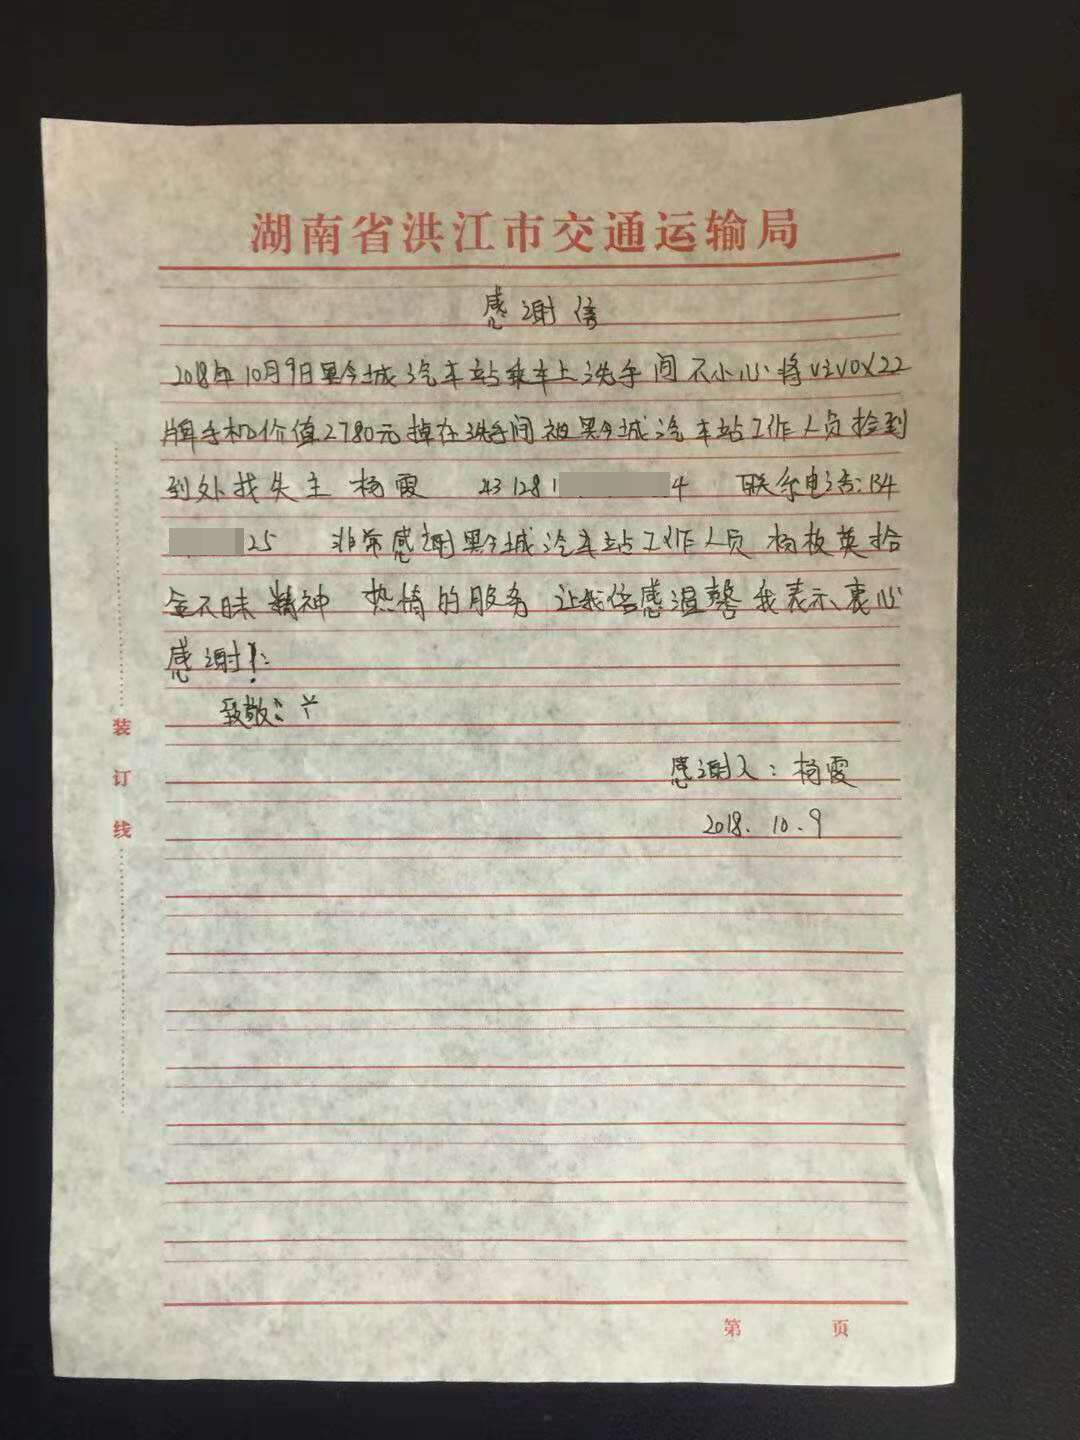 湖南省洪江市交通运输局
感谢信
2018年10月9日黔城汽车站乘车上洗手间不小心将vivoX22
牌手机价值2780元掉在洗手间被黔城汽车站工作人员捡到
到处找失主 杨霞 431281 4 联系电话:134
25 非常感谢黔城汽车站工作人员杨板英拾
金不昧精神 热情的服务 让我倍感温馨 我表示衷心
感谢!
致敬
感谢人:杨霞
2018.10.9
装订线
第 页